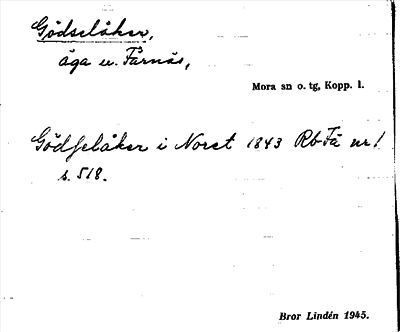 Gödselåker,
äga u. Färnäs,
Mora sn o. tg, Kopp. l.
Gödselåker i Noret 1843 Rb Fä nr 1
s. 518.
Bror Lindén 1945.